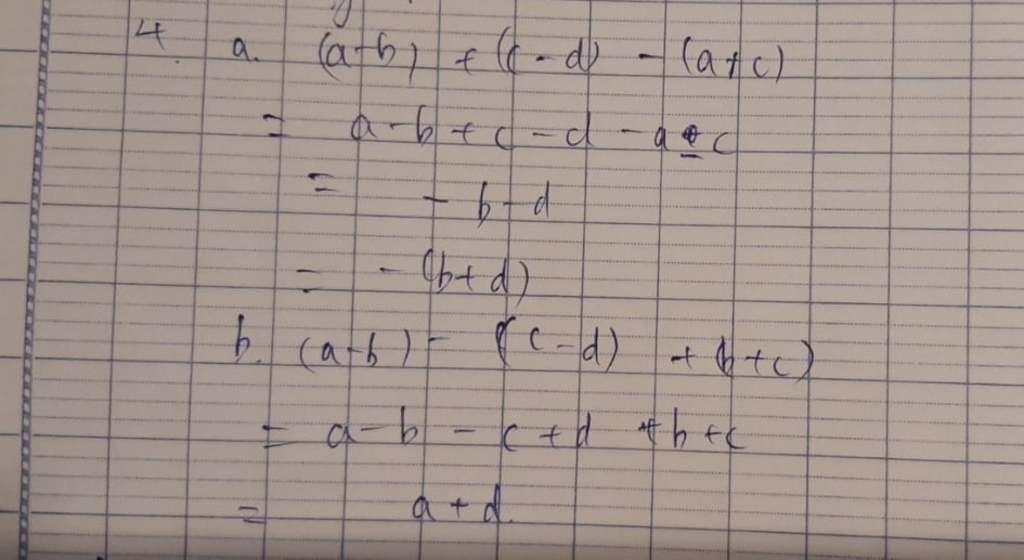 4. a. (a-b) + (c - d) - (a+c)
= a - b + c - d - a - c
= - b - d
= - (b + d)
b. (a-b) - (c - d) + (b + c)
= a - b - c + d + b + c
= a + d.